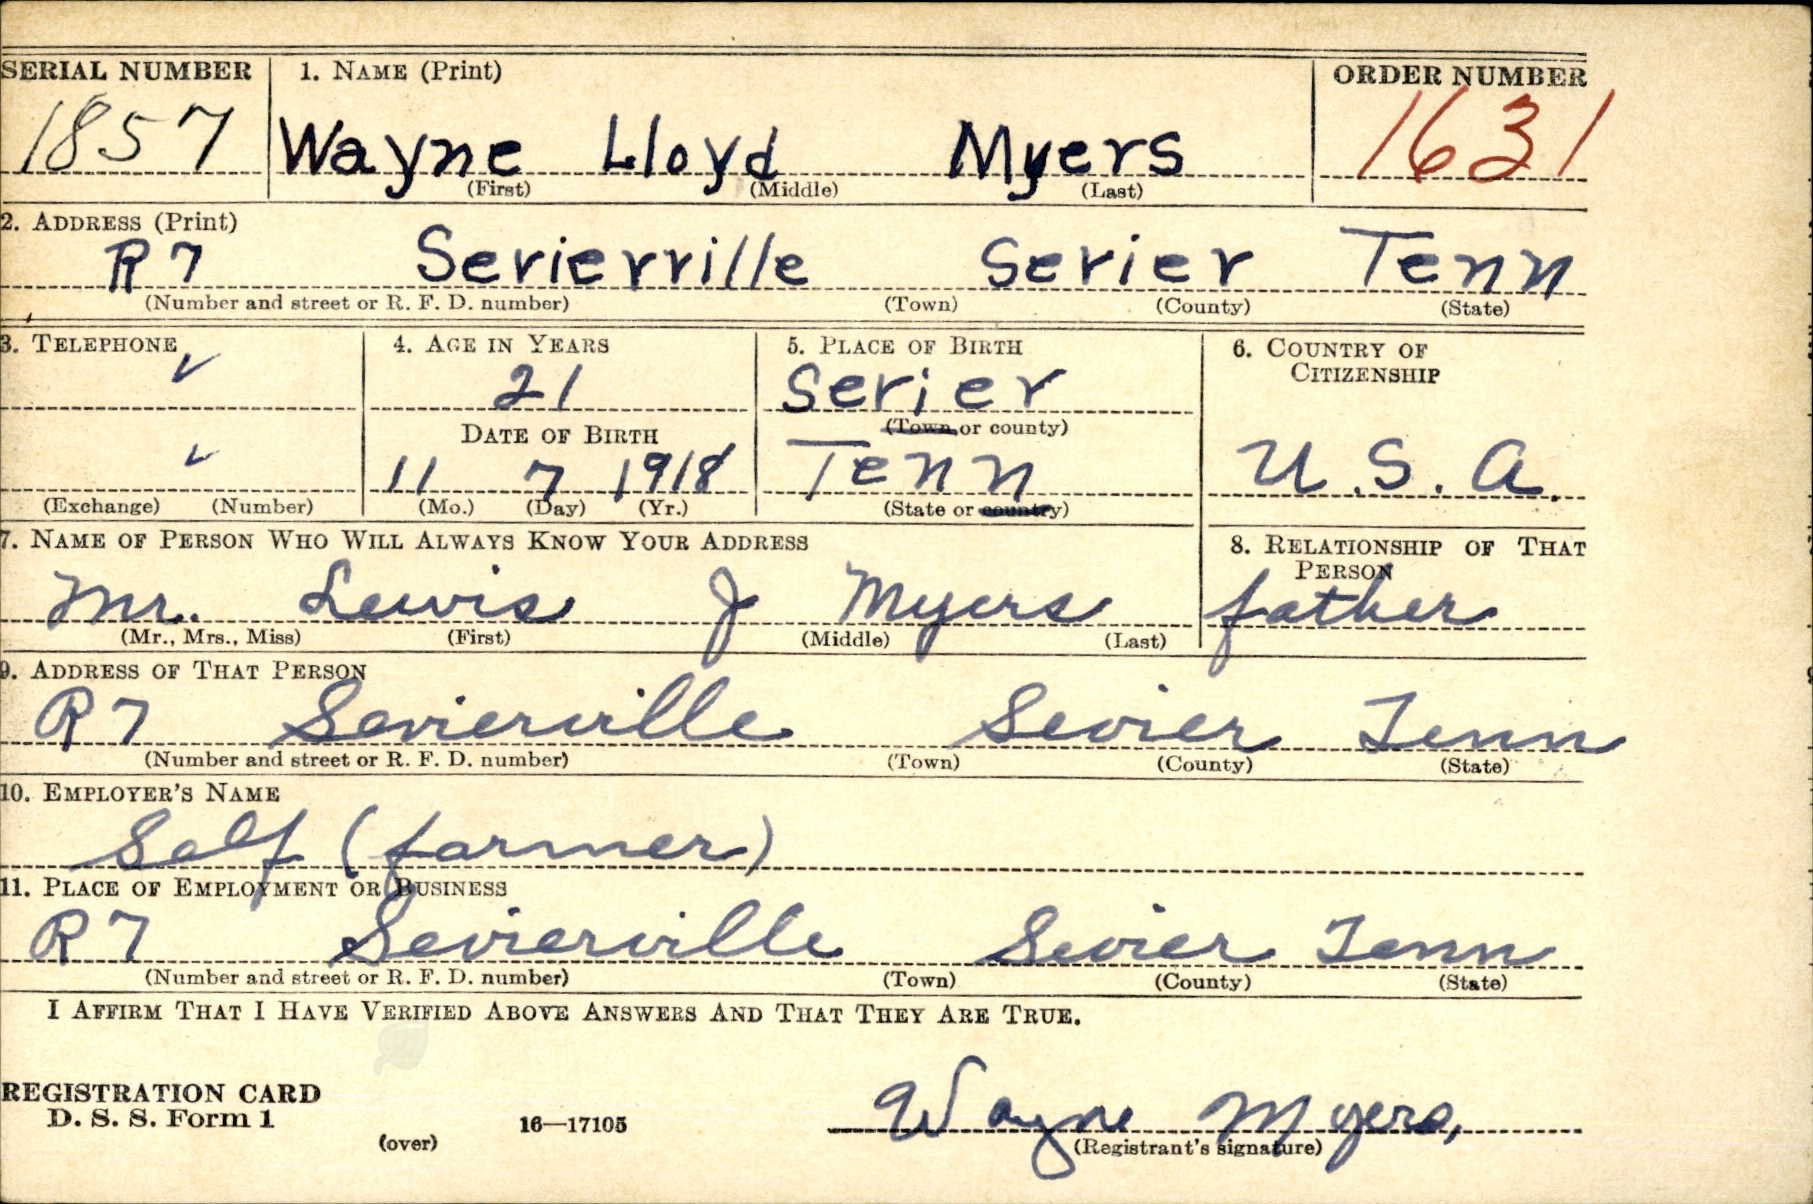 SERIAL NUMBER 1. NAME (Print) ORDER NUMBER
1857 Wayne Lloyd Myers 1631
(First) (Middle) (Last)
2. ADDRESS (Print)
R 7 Sevierville Sevier Tenn
(Number and street or R. F. D. number) (Town) (County) (State)
3. TELEPHONE 4. AGE IN YEARS 5. PLACE OF BIRTH 6. COUNTRY OF CITIZENSHIP
✓ 21 Sevier
DATE OF BIRTH (Town or county)
✓ 11 7 1918 Tenn U.S.A.
(Exchange) (Number) (Mo.) (Day) (Yr.) (State or country)
7. NAME OF PERSON WHO WILL ALWAYS KNOW YOUR ADDRESS 8. RELATIONSHIP OF THAT PERSON
Mr. Lewis J Myers father
(Mr., Mrs., Miss) (First) (Middle) (Last)
9. ADDRESS OF THAT PERSON
R 7 Sevierville Sevier Tenn
(Number and street or R. F. D. number) (Town) (County) (State)
10. EMPLOYER'S NAME
Self (farmer)
11. PLACE OF EMPLOYMENT OR BUSINESS
R 7 Sevierville Sevier Tenn
(Number and street or R. F. D. number) (Town) (County) (State)
I AFFIRM THAT I HAVE VERIFIED ABOVE ANSWERS AND THAT THEY ARE TRUE.
REGISTRATION CARD
D. S. S. Form 1 16—17105 Wayne Myers,
(over) (Registrant's signature)